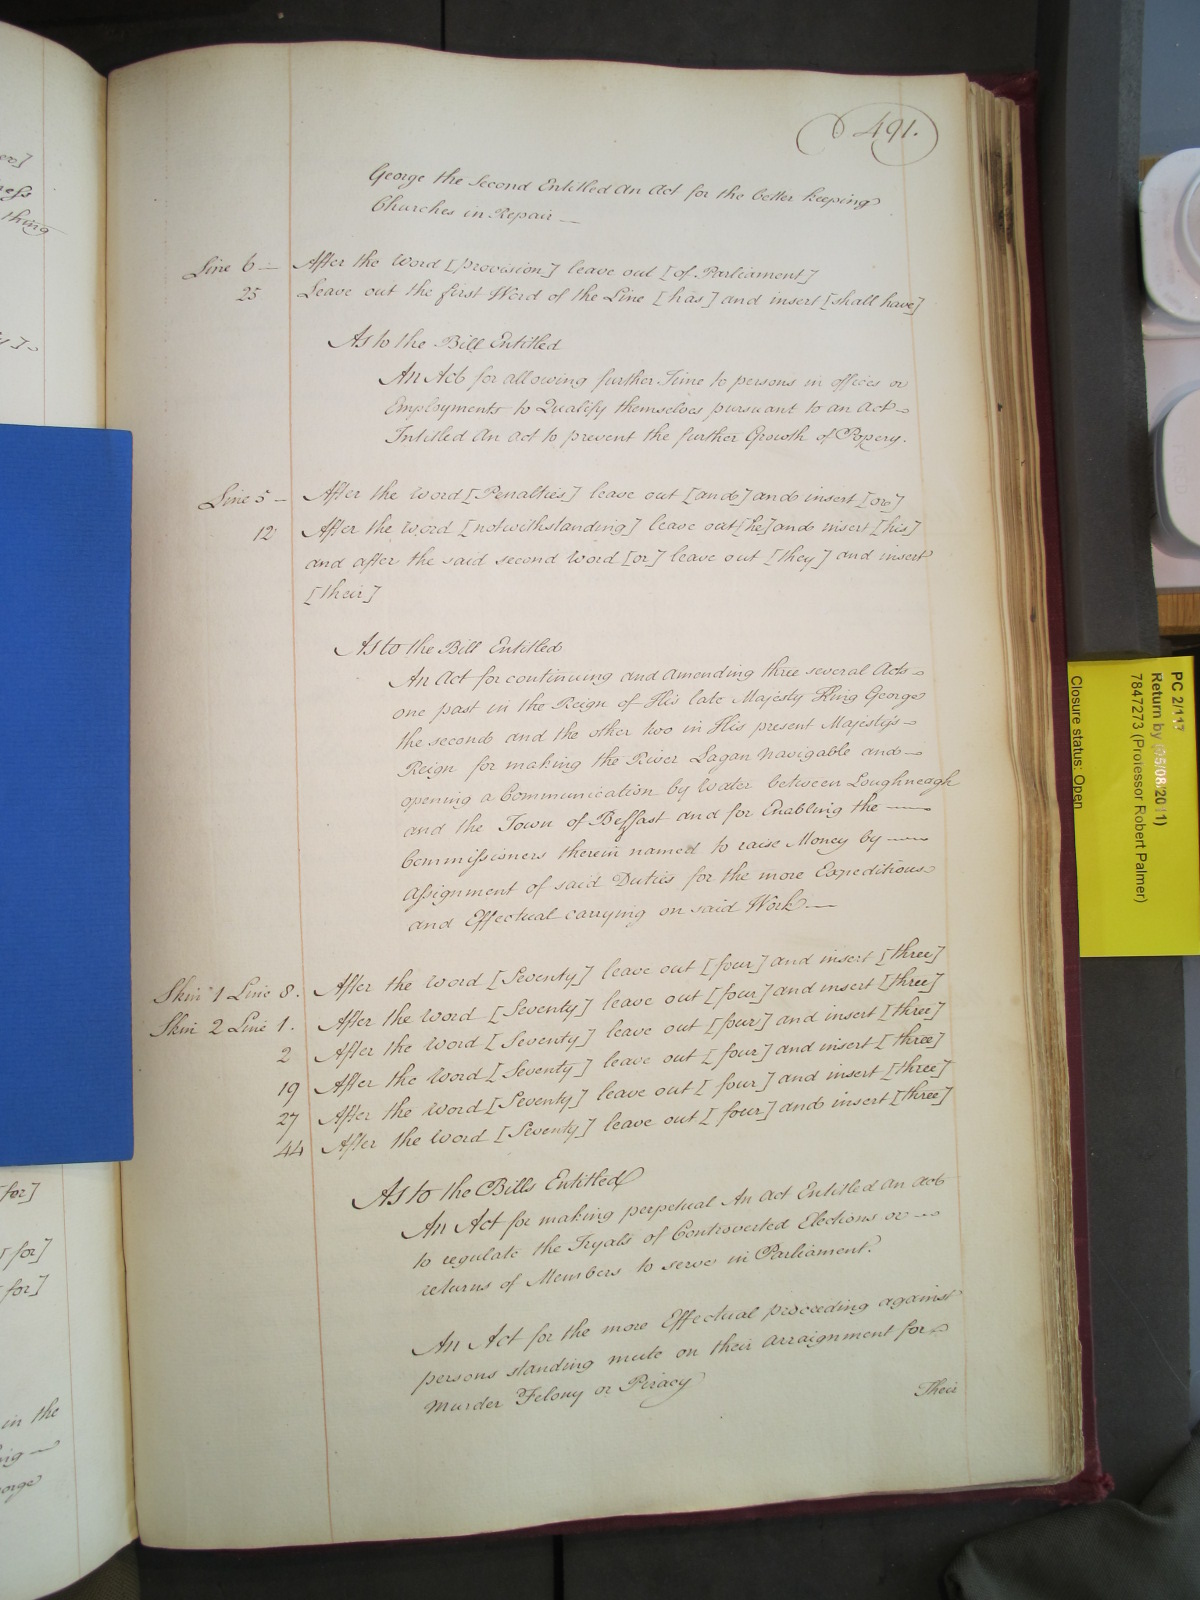 491.
George the Second Entitled An Act for the better keeping
Churches in Repair —
Line 6 — After the Word [provision] leave out [of Parliament]
25 Leave out the first Word of the Line [has] and insert [shall have]
As to the Bill Entitled
An Act for allowing further Time to persons in offices or
Employments to Qualify themselves pursuant to an Act
Intitled An Act to prevent the further Growth of Popery.
Line 5 — After the Word [Penalties] leave out [and] and insert [or]
12 After the word [notwithstanding] leave out [he] and insert [his]
and after the said second Word [or] leave out [they] and insert
[their]
As to the Bill Entitled
An Act for continuing and amending three several Acts
one past in the Reign of His late Majesty King George
the second and the other two in His present Majesty's
Reign for making the River Lagan Navigable and
opening a Communication by Water between Loughneagh
and the Town of Belfast and for Enabling the —
Commissioners therein named to raise Money by —
Assignment of said Duties for the more Expeditious
and Effectual carrying on said Work —
Skin 1 Line 8. After the Word [Seventy] leave out [four] and insert [three]
Skin 2 Line 1. After the Word [Seventy] leave out [four] and insert [three]
2 After the Word [Seventy] leave out [four] and insert [three]
19 After the Word [Seventy] leave out [four] and insert [three]
27 After the Word [Seventy] leave out [four] and insert [three]
44 After the Word [Seventy] leave out [four] and insert [three]
As to the Bills Entitled
An Act for making perpetual An Act Entitled An Act
to regulate the Tryals of Controverted Elections or —
returns of Members to serve in Parliament.
An Act for the more Effectual proceeding against
persons standing mute on their arraignment for
Murder Felony or Piracy
Their
thing
for]
for]
for]
in the
orge
PC 2/117
Return by (05/08/2011)
7847273 (Professor Robert Palmer)
Closure status: Open